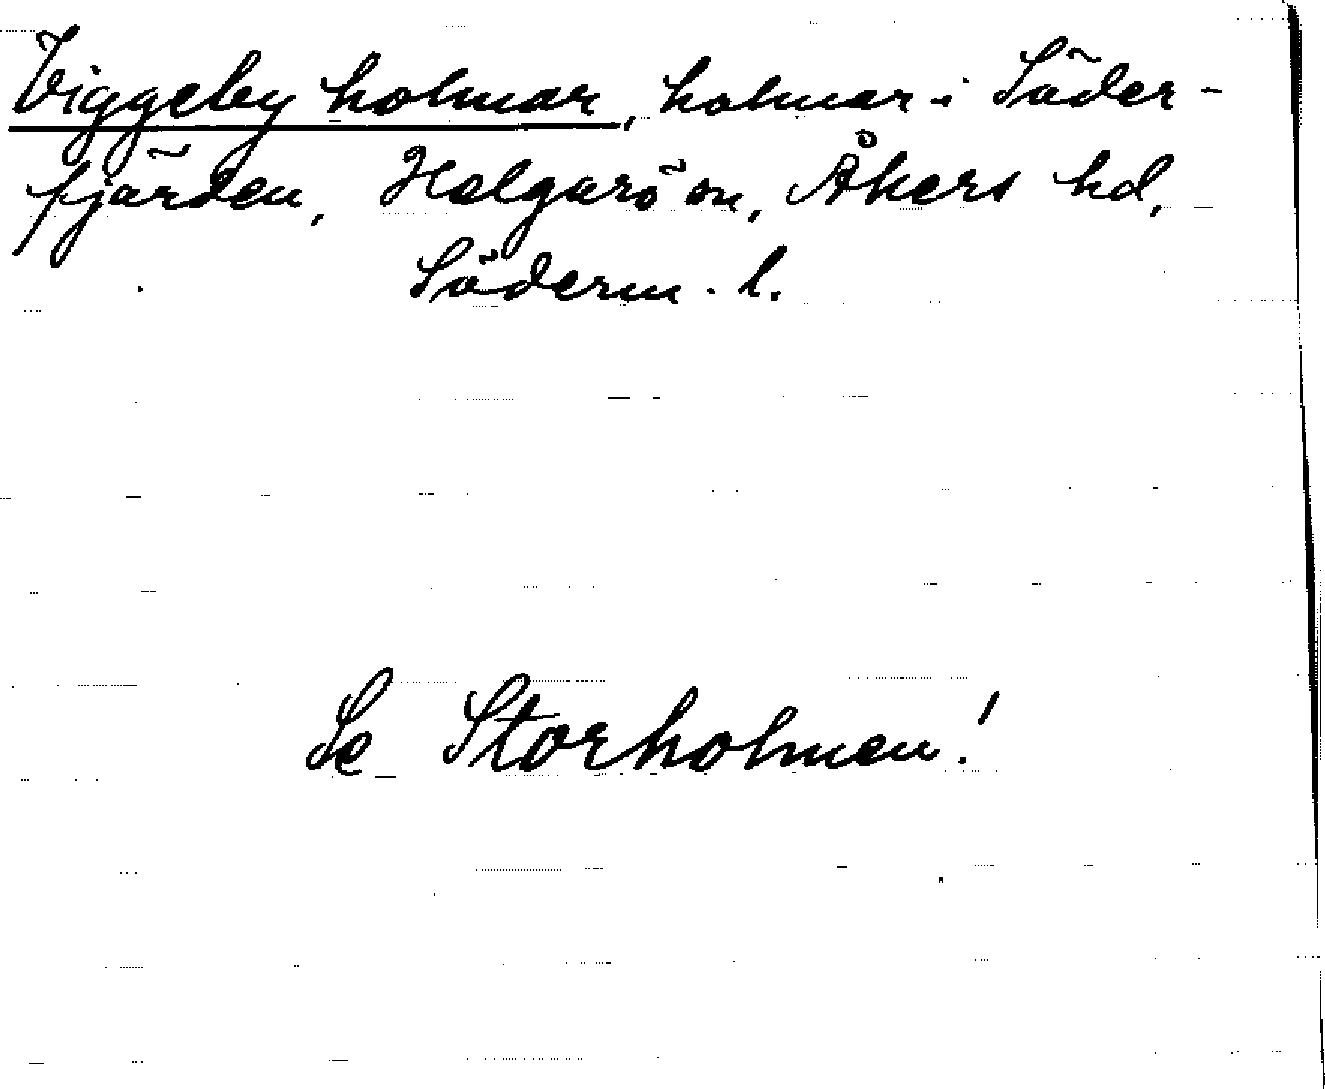 Viggeby holmar, holmar i Söder-
fjärden, Helgarö sn, Åkers hd,
Söderm. l.
Se Storholmen!